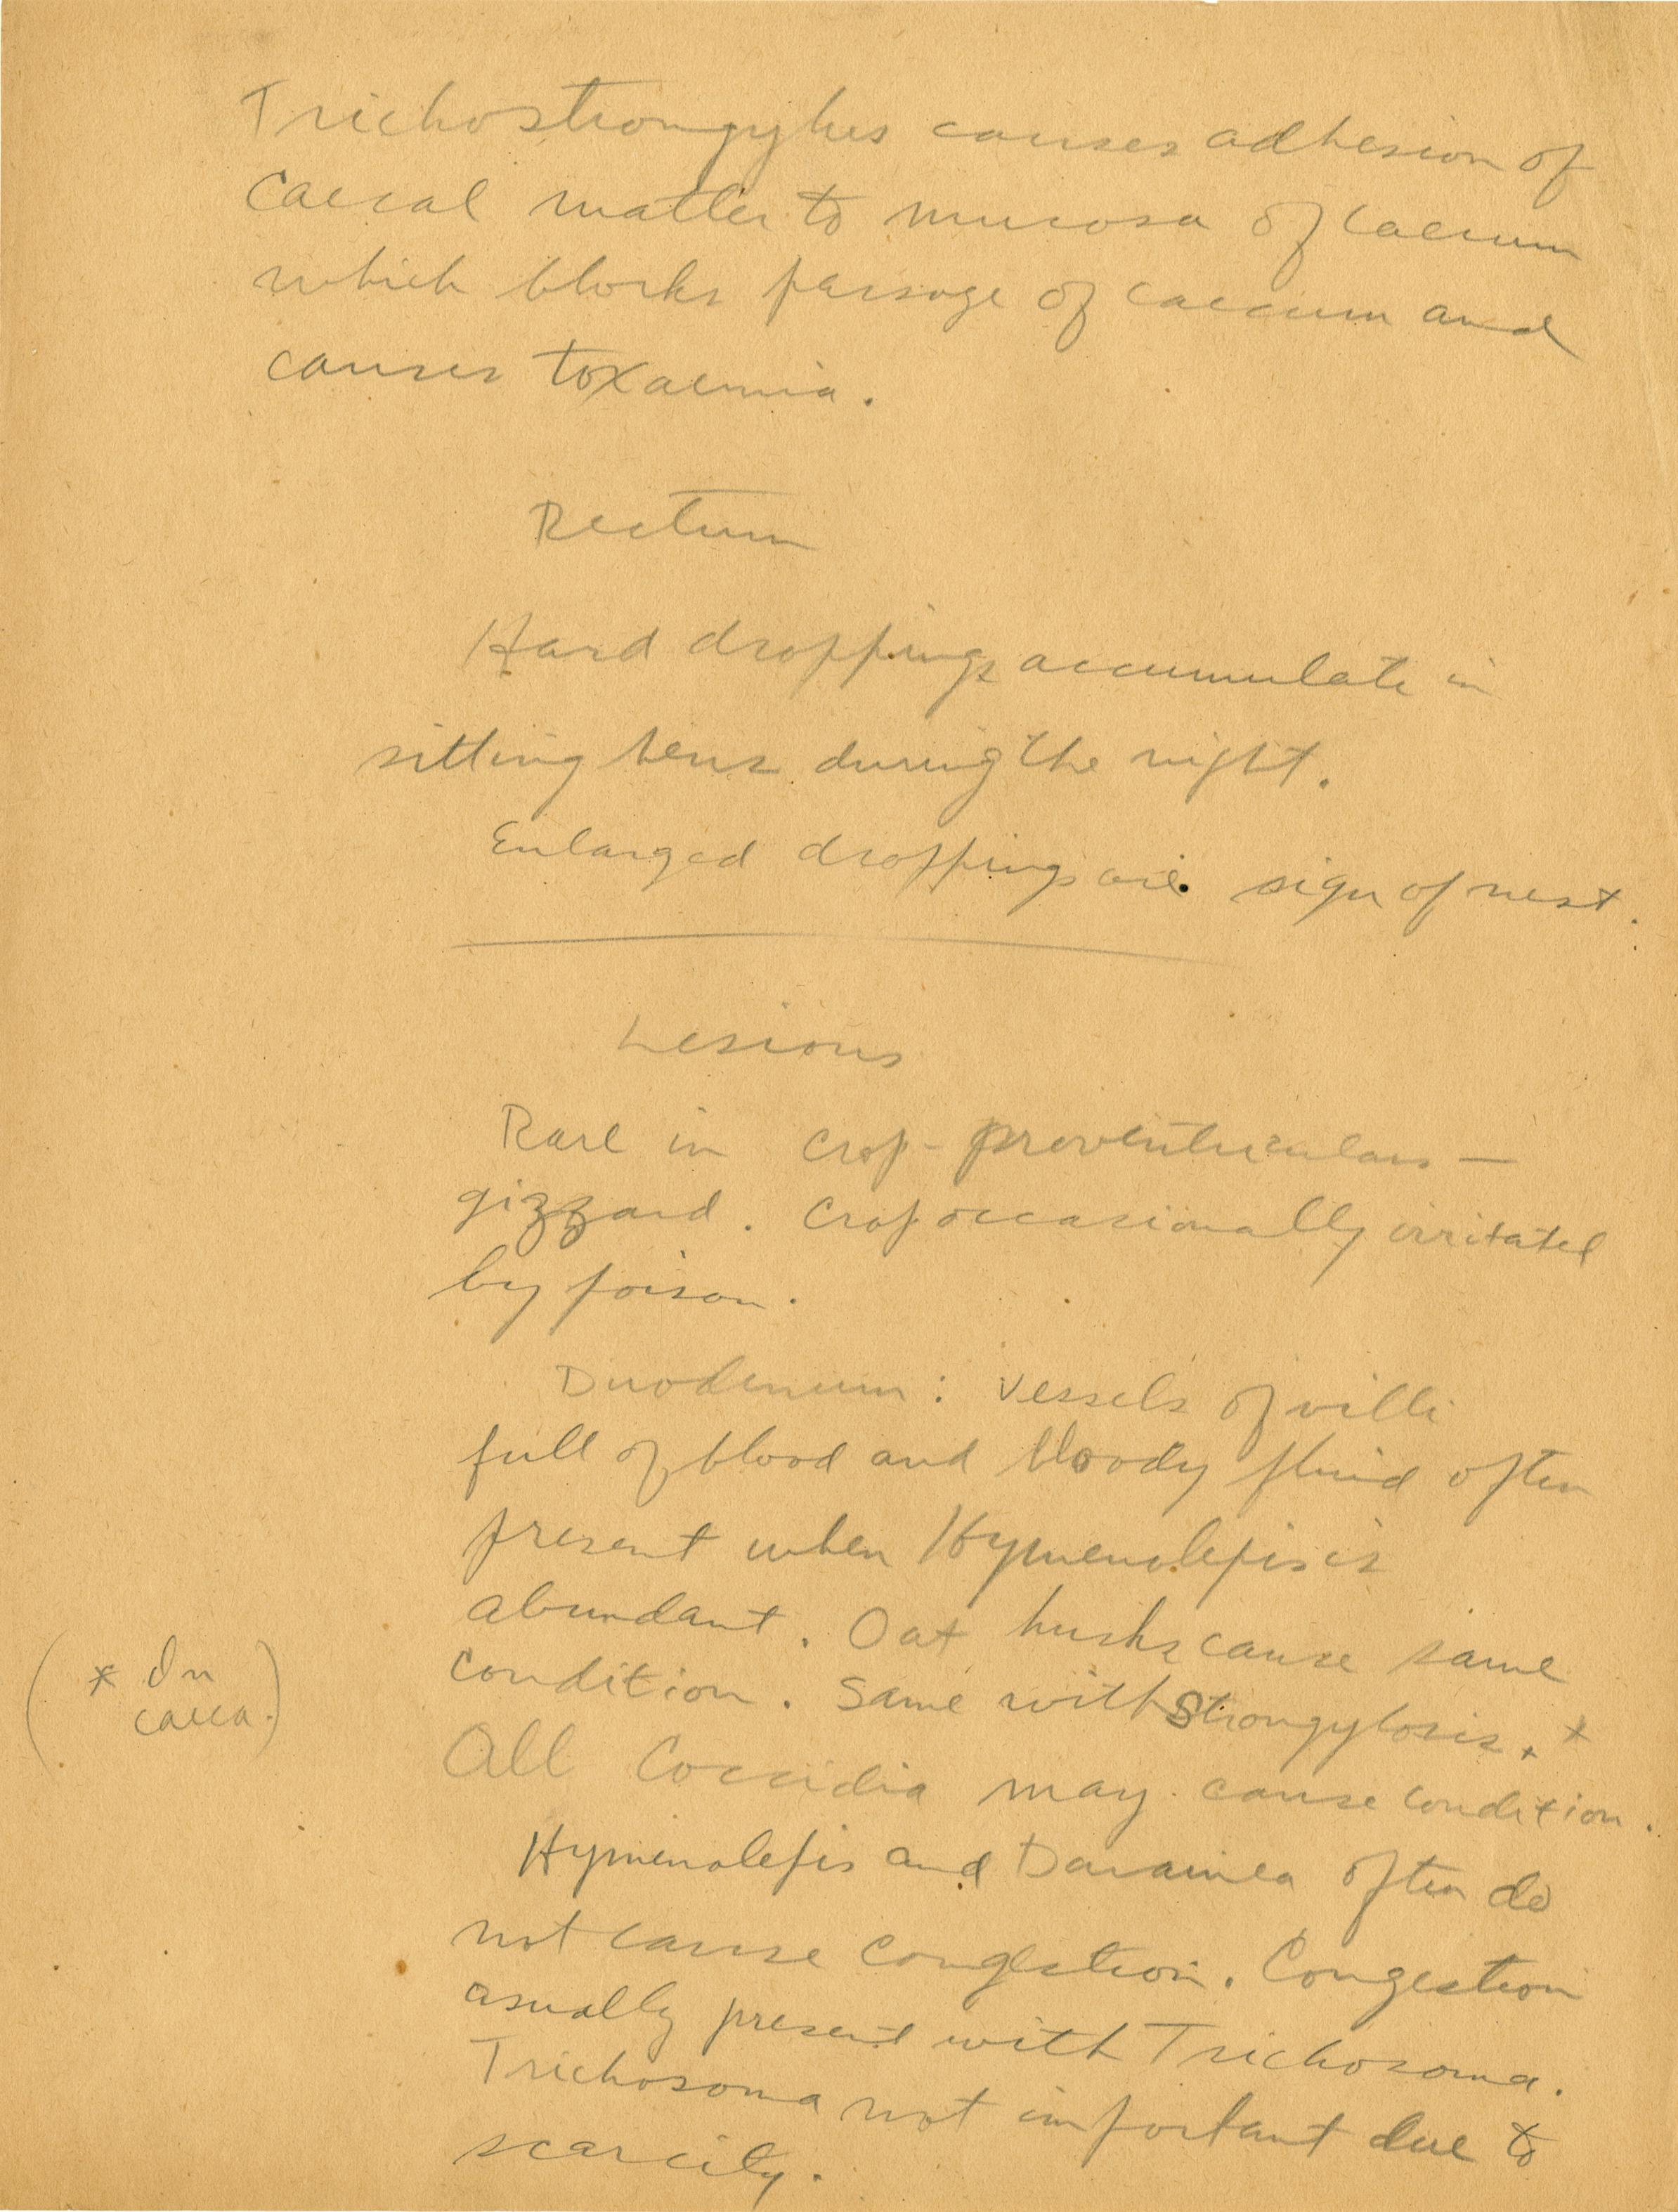 Trichostrongylus causes adhesion of
caecal matter to mucosa of caecum
which blocks passage of caecum and
causes toxaemia.
Rectum
Hard droppings accumulate in
sitting hens during the night.
Enlarged droppings are sign of nest.
Lesions
Rare in crop - proventriculus —
gizzard. Crop occasionally irritated
by poison.
Duodenum: Vessels of villi
full of blood and bloody fluid often
present when Hymenolepis is
abundant. Oat husks cause same
condition. Same with Strongylosis. *
(* In
caeca.)
All Coccidia may cause condition.
Hymenolepis and Davainea often do
not cause congestion. Congestion
usually present with Trichosoma.
Trichosoma not important due to
scarcity.